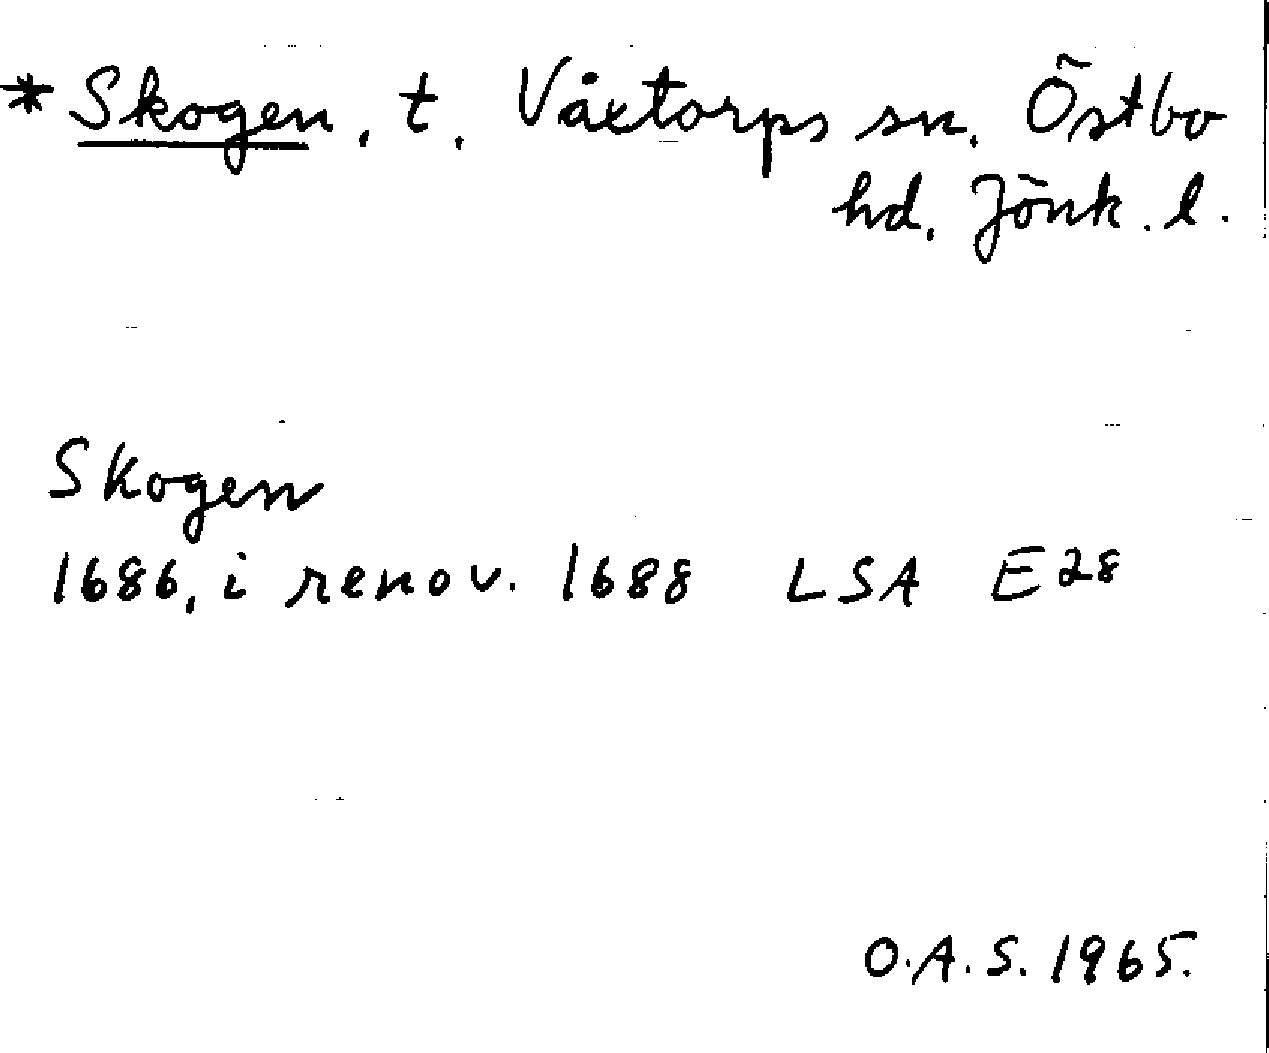 * Skogen, t. Våxtorps sn, Östbo
hd, Jönk. l.
Skogen
1686, i renov. 1688 LSA E28
O.A.S. 1965.